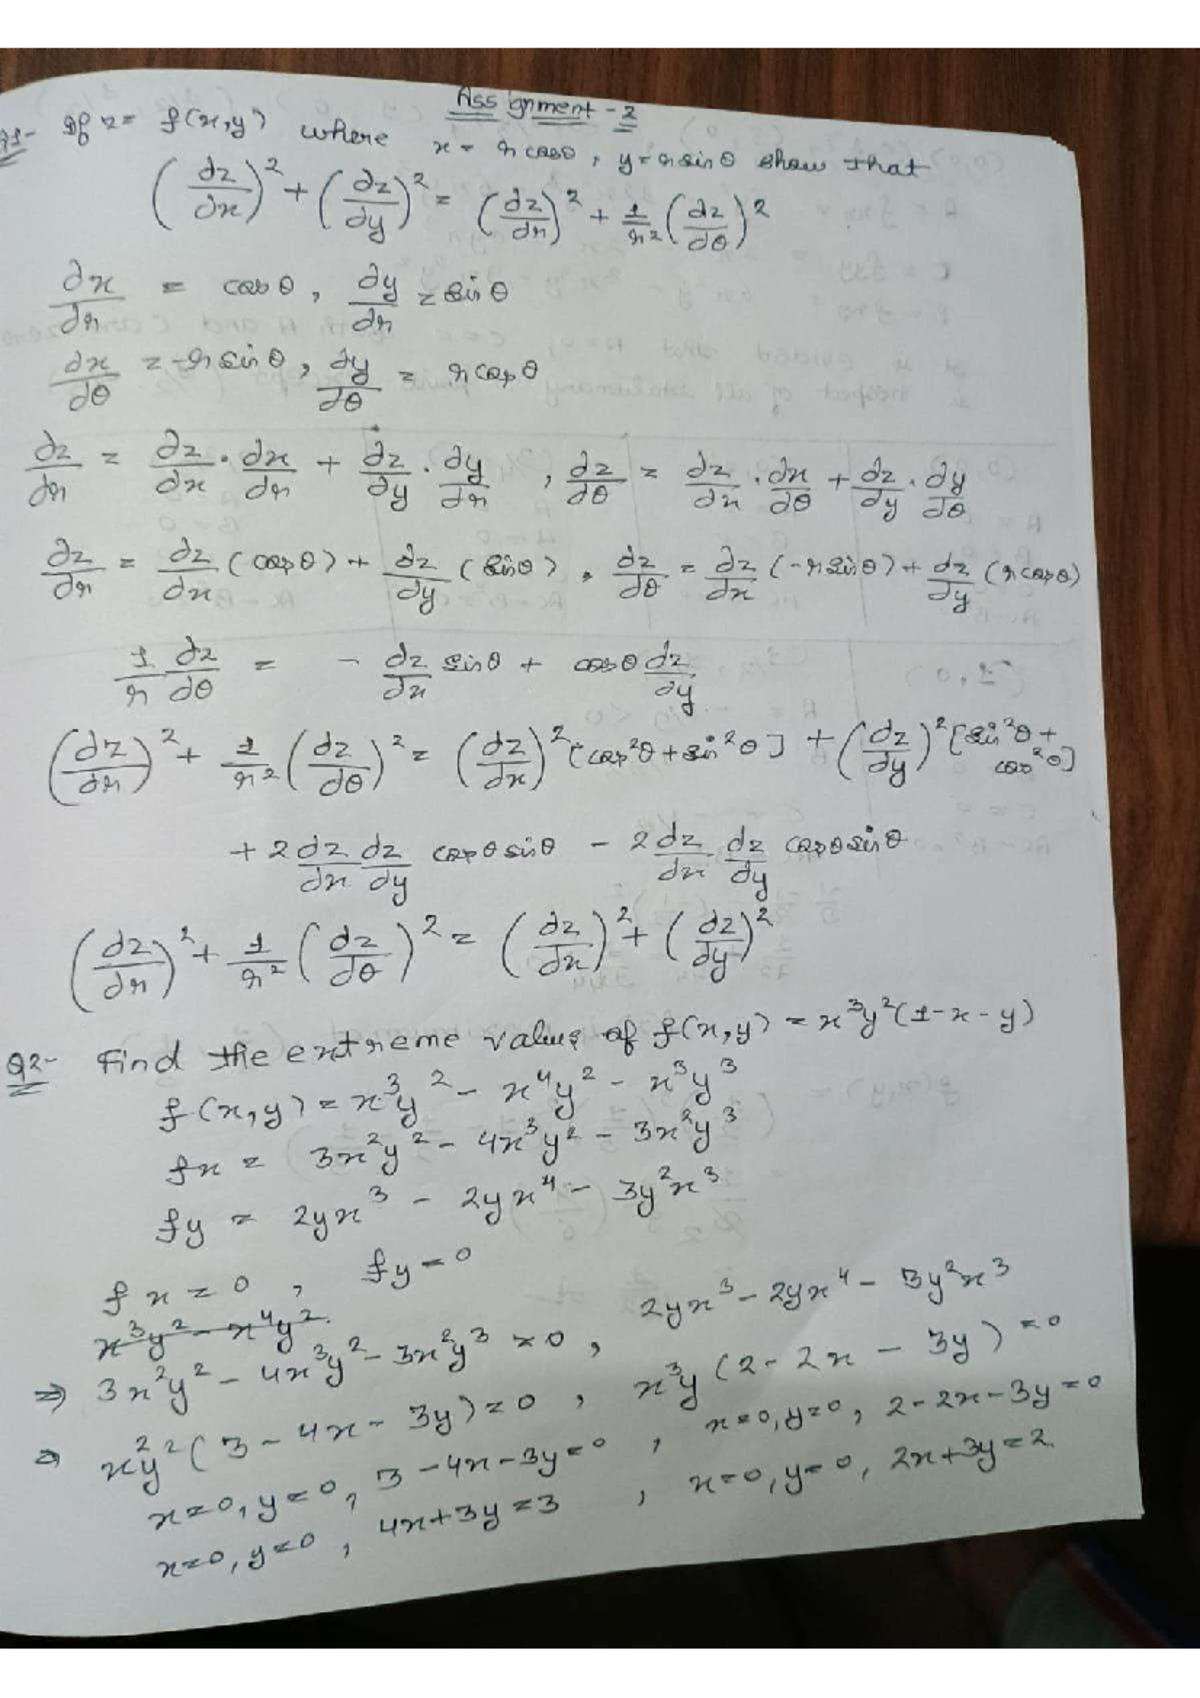 Assignment - 2
Q1- If z = f(x,y) where x = r cosθ, y = r sinθ show that
(∂z/∂x)² + (∂z/∂y)² = (∂z/∂r)² + 1/r² (∂z/∂θ)²
∂x/∂r = cosθ, ∂y/∂r = sinθ
∂x/∂θ = -r sinθ, ∂y/∂θ = r cosθ
∂z/∂r = ∂z/∂x · ∂x/∂r + ∂z/∂y · ∂y/∂r , ∂z/∂θ = ∂z/∂x · ∂x/∂θ + ∂z/∂y · ∂y/∂θ
∂z/∂r = ∂z/∂x (cosθ) + ∂z/∂y (sinθ), ∂z/∂θ = ∂z/∂x (-r sinθ) + ∂z/∂y (r cosθ)
1/r ∂z/∂θ = - ∂z/∂x sinθ + cosθ ∂z/∂y
(∂z/∂r)² + 1/r² (∂z/∂θ)² = (∂z/∂x)² [cos²θ + sin²θ] + (∂z/∂y)² [sin²θ + cos²θ]
+ 2 ∂z/∂x ∂z/∂y cosθ sinθ - 2 ∂z/∂x ∂z/∂y cosθ sinθ
(∂z/∂r)² + 1/r² (∂z/∂θ)² = (∂z/∂x)² + (∂z/∂y)²
Q2- Find the extreme values of f(x,y) = x³y²(1-x-y)
f(x,y) = x³y² - x⁴y² - x³y³
fx = 3x²y² - 4x³y² - 3x²y³
fy = 2yx³ - 2yx⁴ - 3y²x³
fx = 0 , fy = 0
x³y² - x⁴y².
⇒ 3x²y² - 4x³y² - 3x²y³ = 0 , 2yx³ - 2yx⁴ - 3y²x³
⇒ x²y²(3 - 4x - 3y) = 0 , x³y(2 - 2x - 3y) = 0
x=0, y=0, 3-4x-3y=0 , x=0, y=0, 2-2x-3y=0
x=0, y=0, 4x+3y=3 , x=0, y=0, 2x+3y=2.